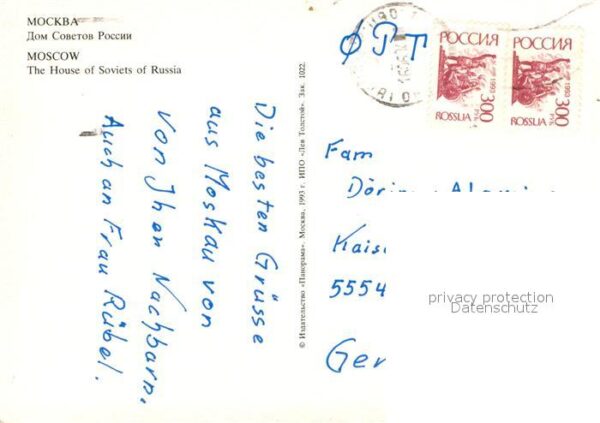 МОСКВА
Дом Советов России
MOSCOW
The House of Soviets of Russia
Die besten Grüsse
aus Moskau von
Von Jhen Nachbarn.
Auch an Frau Rübel.
© Издательство «Панорама». Москва, 1993 г. ИПО «Лев Толстой». Зак. 1022.
ФРГ
РОССИЯ
1993
300
РУБ.
ROSSIJA
РОССИЯ
1993
300
РУБ.
ROSSIJA
Fam
Kais
5554
Ger
privacy protection
Datenschutz